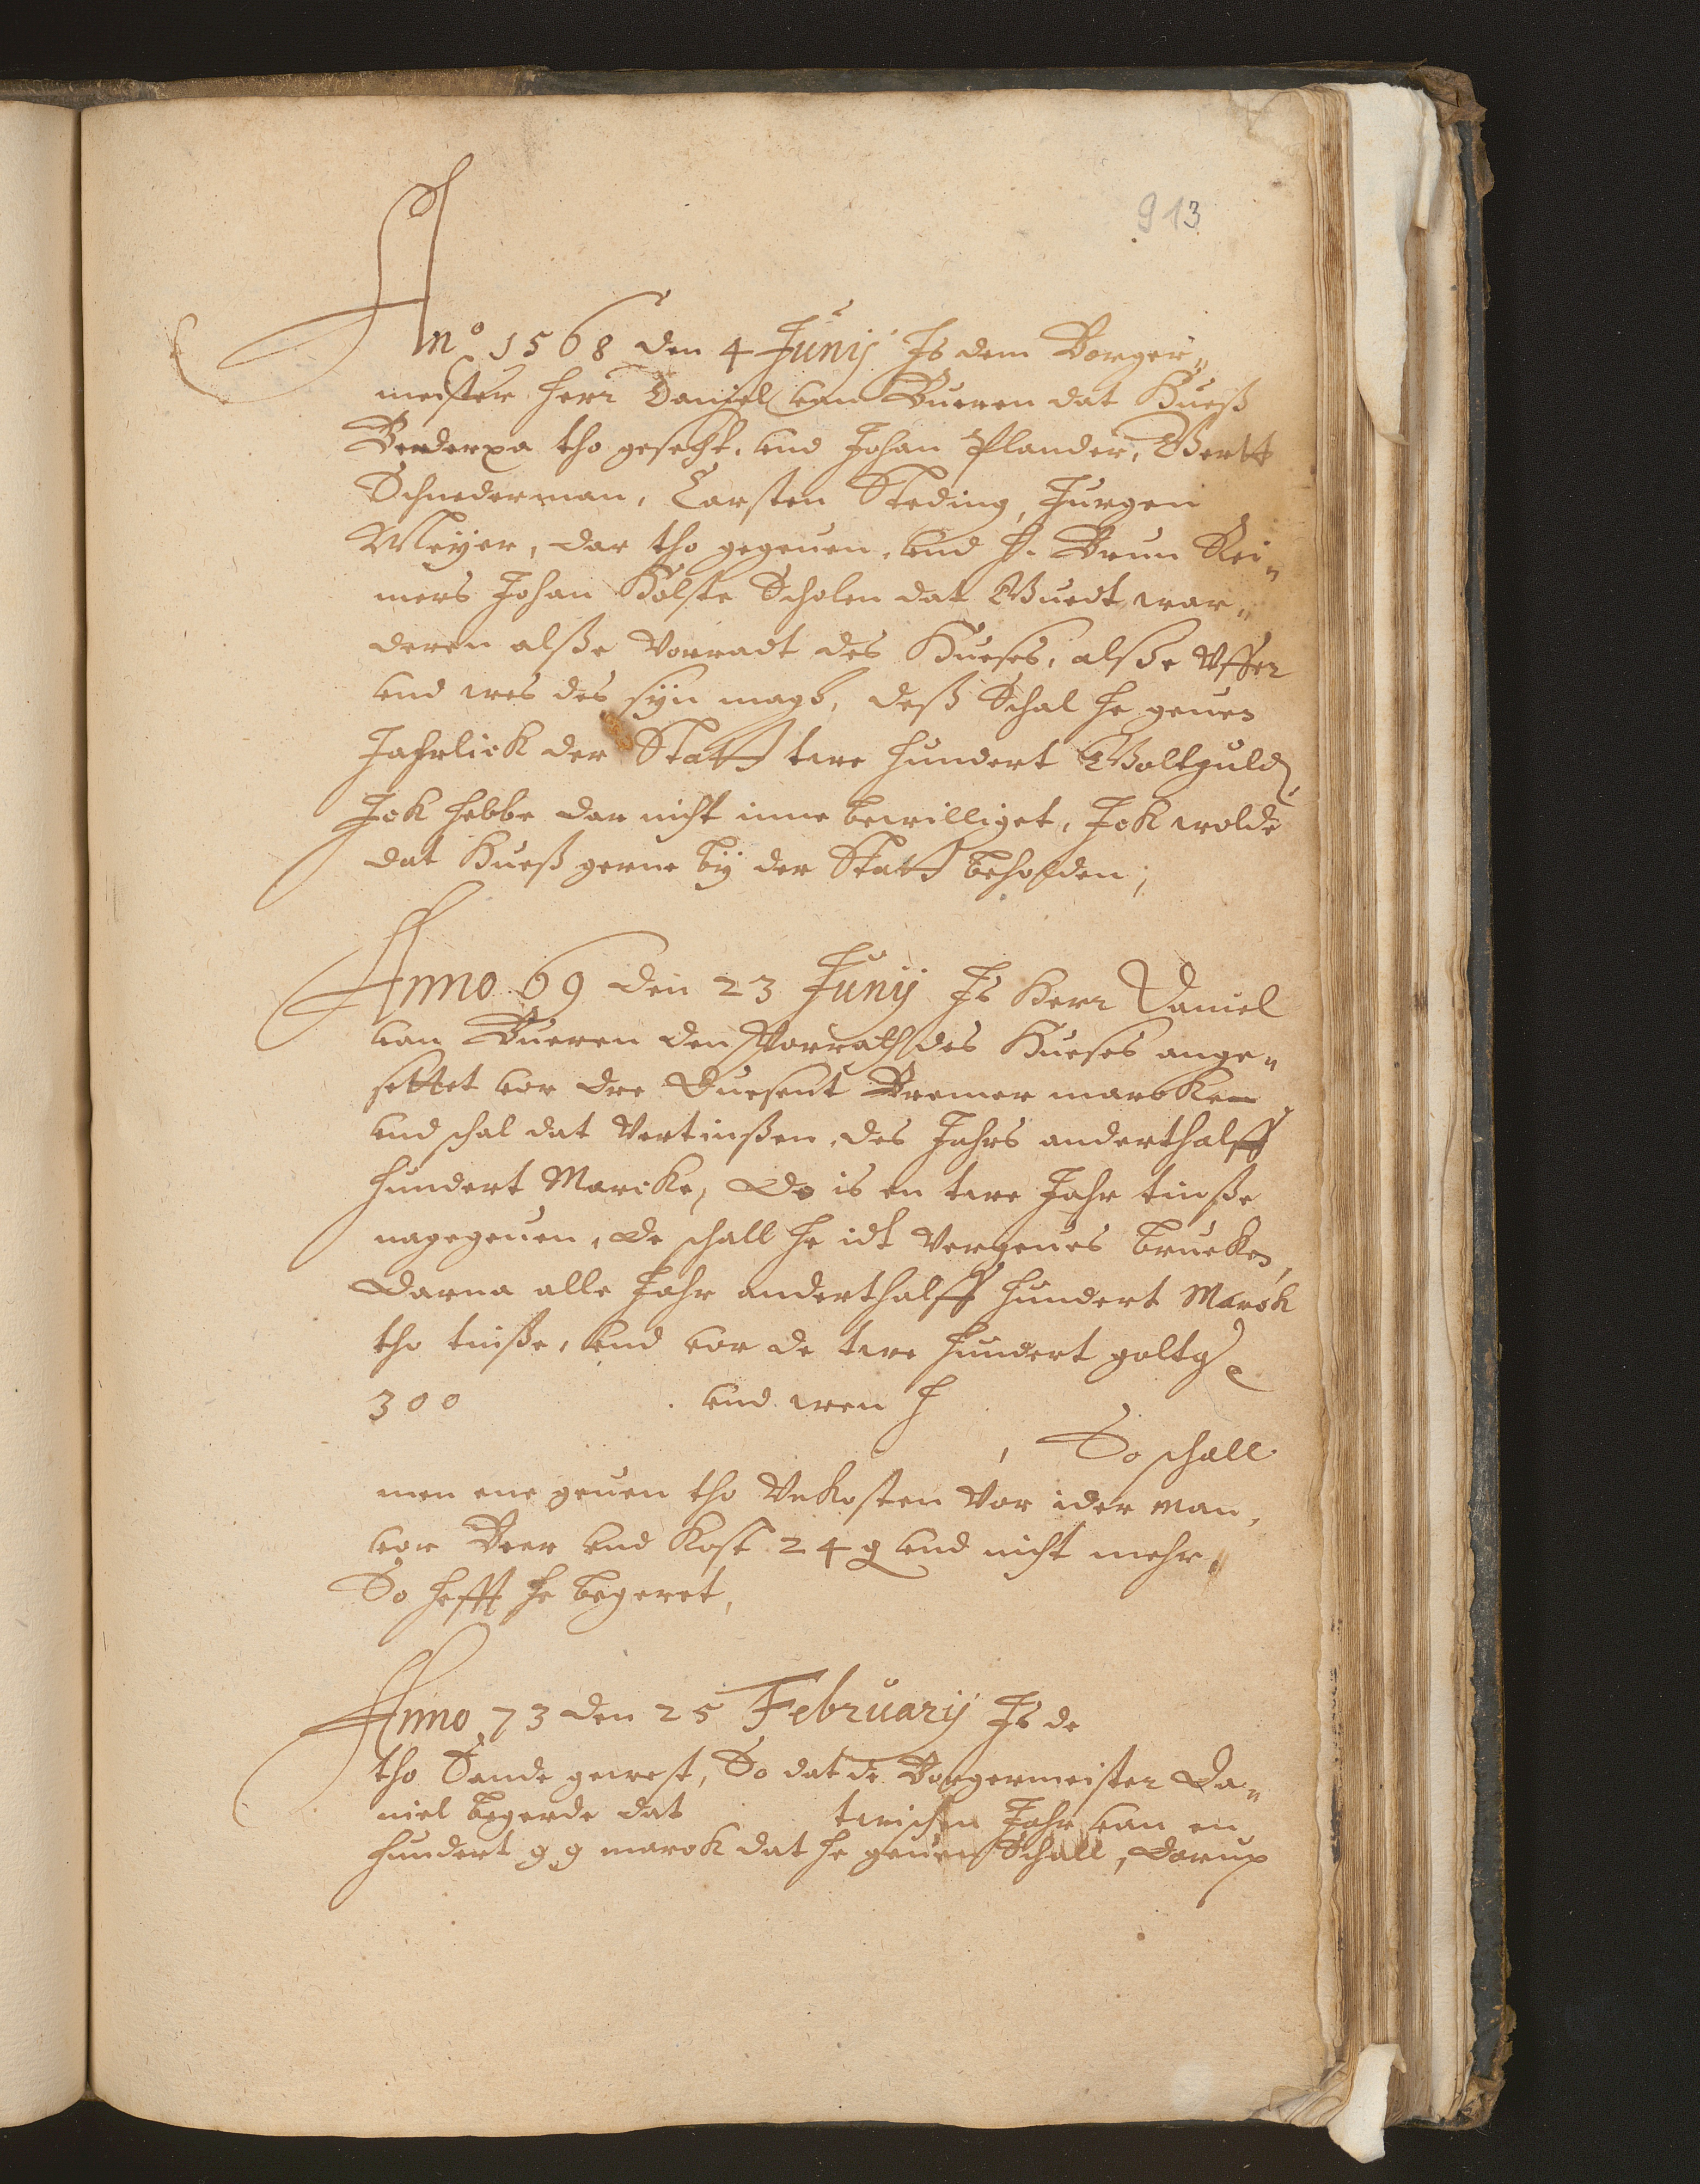 913
Anno 1568 den 4 Junij Is dem Borger„
meister herr Daniel van Bueren dat Hueß
Bederxa tho gesecht, und Johan Plander, Gertt
Schnederman, Carsten Steding, Jurgen
Meÿer, dar tho gegeuen, und h. Brun Rei„
mers Johan Holste Scholen dat Guedt wer„
deren alße Vorradt des Hueses, alße Offer
und wes des sÿn magh, deß Schal he geuen
Jahrlick der Statt twe hundert Goltguld
Ick hebbe dar nicht inne bewilliget, Ick wolde
dat Hueß gerne bÿ der Statt beholden;
Anno 69 den 23 Junij Is Herr Daniel
van Bueren den Vorrath des Hueses ange„
settet vor dre Duesent Bremer marcken
und schal dat Vertinßen, des Jahrs anderthalff
hundert Marcke, Do is en twe Jahr tinße
nagegeuen, de schall he idt Vergeues brueken,
Darna alle Jahr anderthalff hundert Marck
tho tinße, und vor de twe hundert goltg
300 und wen h
, So schall
men ene geuen tho Unkosten Vor ider man,
vor Beer und Kost 24 g und nicht mehr,
So hefft he begeret,
Anno 73 den 25 Februarij Is de
tho Sande gewest, So dat de Borgermeister Da„
niel begerde dat twischen Jahr van en
hundert g g marck dat he geuen Schall, Darup